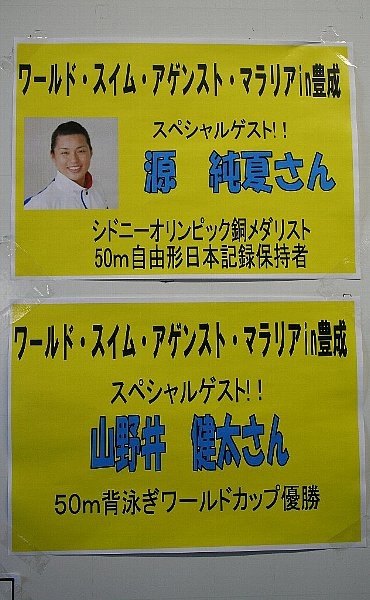 ワールド・スイム・アゲンスト・マラリアin豊成
スペシャルゲスト!!
源　純夏さん
シドニーオリンピック銅メダリスト
50m自由形日本記録保持者
ワールド・スイム・アゲンスト・マラリアin豊成
スペシャルゲスト!!
山野井　健太さん
50m背泳ぎワールドカップ優勝